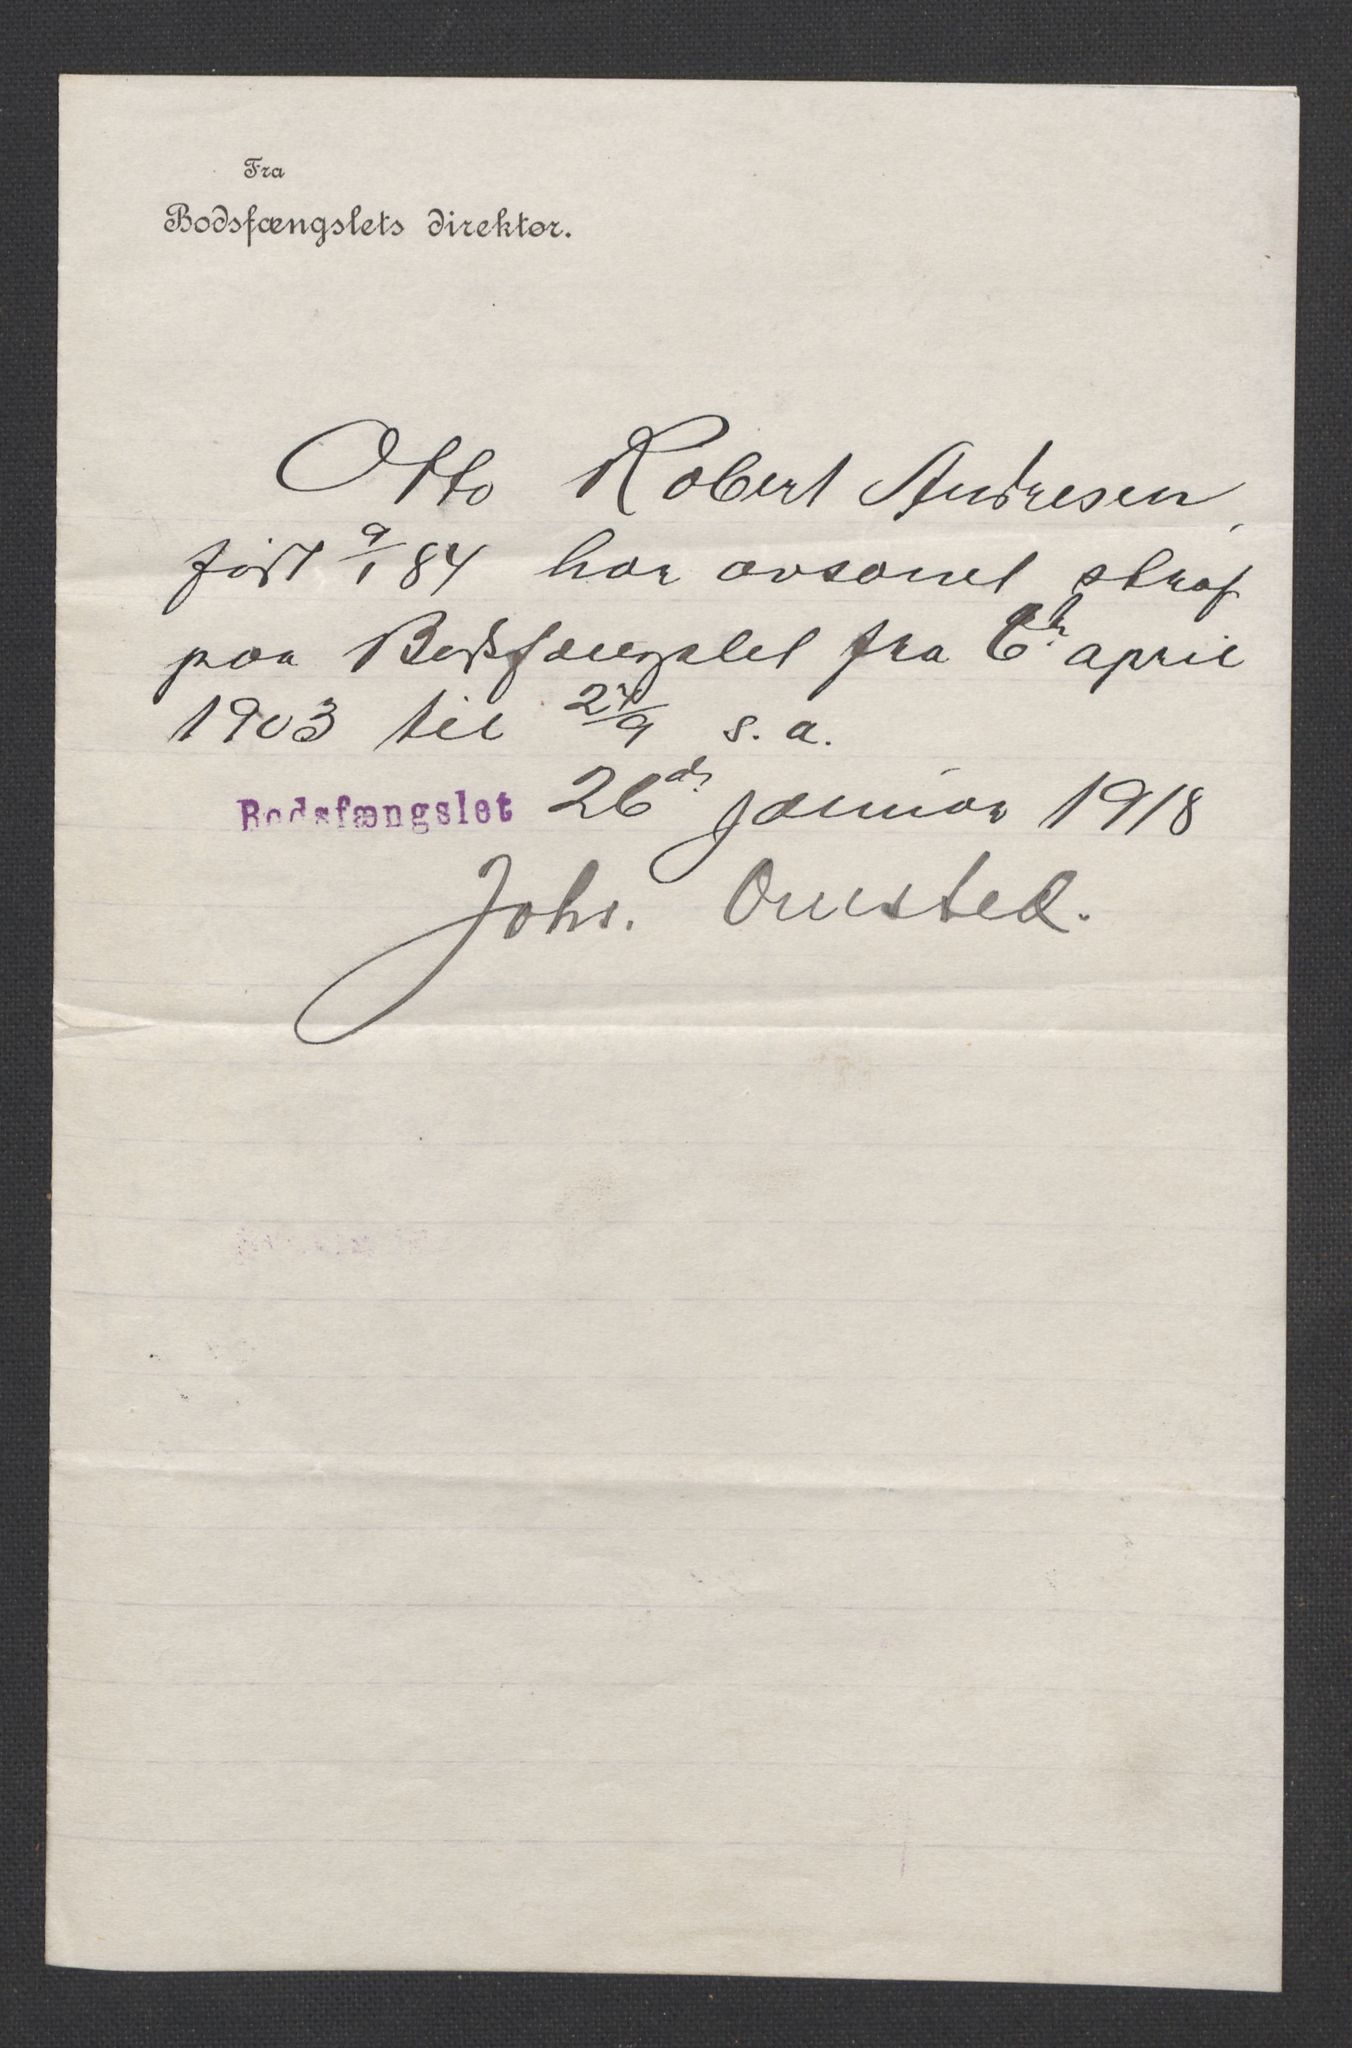 Fra
Bodsfængslets direktør.
Otto Robert Andresen,
født 9/1 84 har avsonet straf
paa Bodsfængslet fra 6te april
1903 til 24/9 s. a.
Bodsfængslet 26de januar 1918
Johs. Omsted.